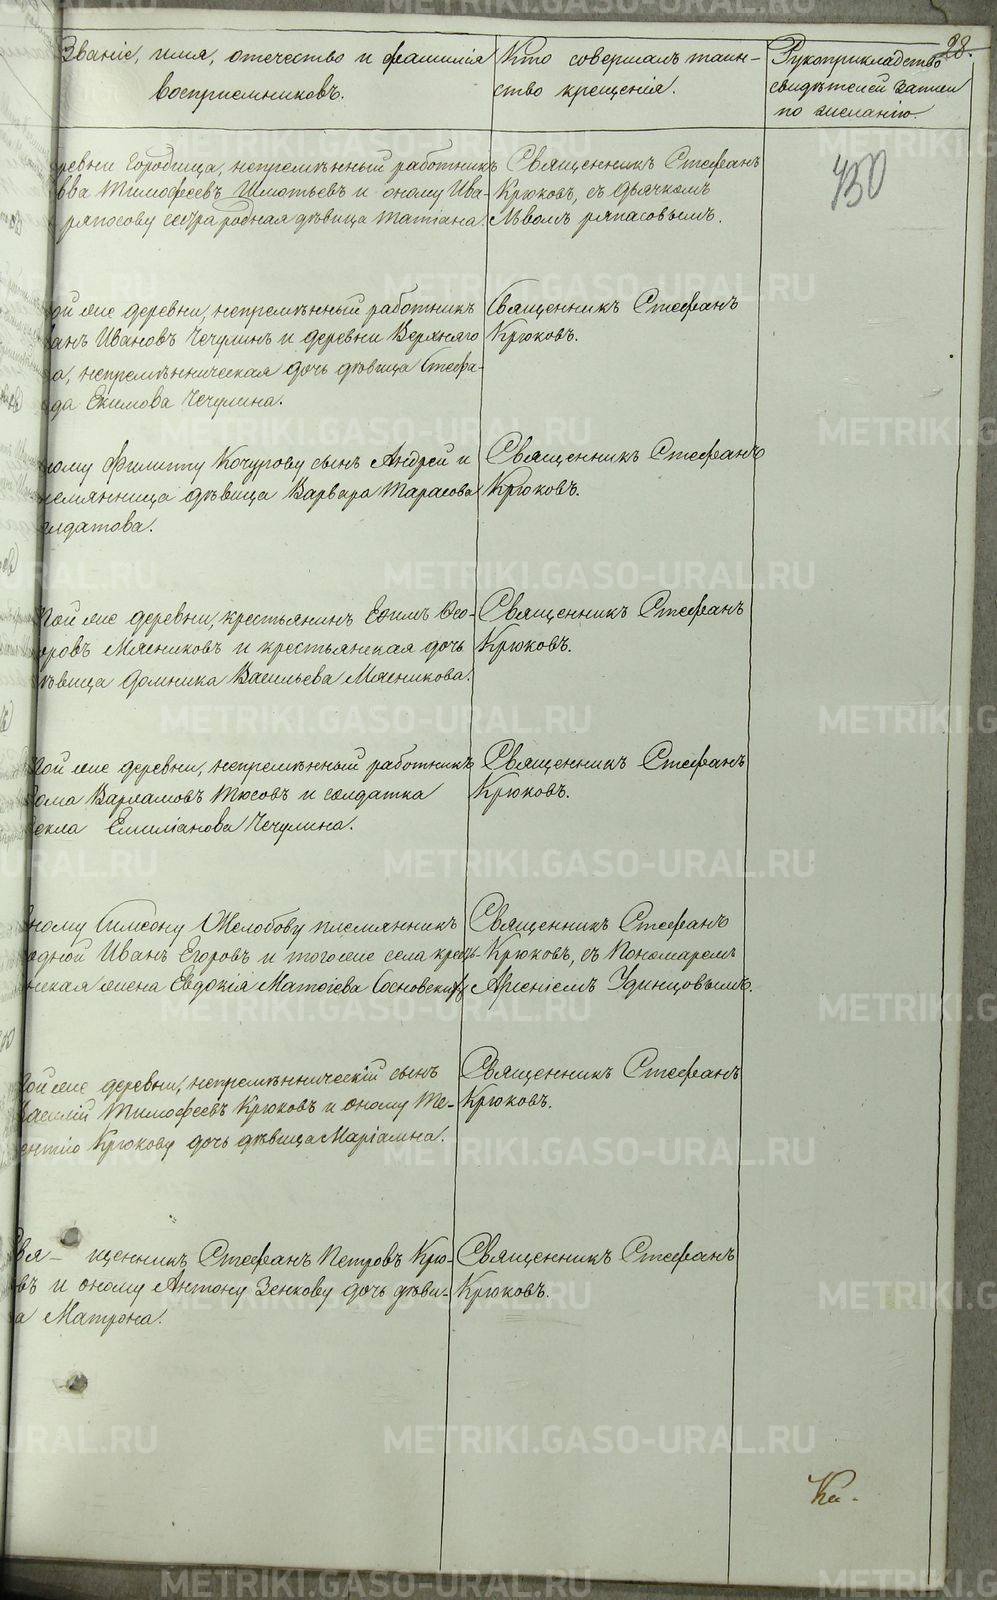 28.
Званіе, имя, отчество и фамилія
воспріемниковъ.
Кто совершалъ таин-
ство крещенія.
Рукоприкладство
свидѣтелей записи
по желанію.
450
ревни Городища, непремѣнный работникъ
вва Тимофеевъ и оному Ива-
ряпосову сестра родная дѣвица Татіана.
Священникъ Стефанъ
Крюковъ, съ дьячкомъ
Львомъ ряпасовымъ.
ой же деревни, непремѣнный работникъ
анъ Ивановъ Чечулинъ и деревни Верхняго
а, непремѣнническая дочь дѣвица Стефа-
ида Екимова Чечулина.
Священникъ Стефанъ
Крюковъ.
ному Филиппу Кочурову сынъ Андрей и
племянница дѣвица Варвара Тарасова
олдатова.
Священникъ Стефанъ
Крюковъ.
той же деревни, крестьянинъ Ефимъ Ѳео-
оровъ Мясниковъ и крестьянская дочь
дѣвица Домника Васильева Мясникова.
Священникъ Стефанъ
Крюковъ.
той же деревни, непремѣнный работникъ
ома Варламовъ Тюсовъ и солдатка
екла Емиліанова Чечулина.
Священникъ Стефанъ
Крюковъ.
оному Симеону Желобову племянникъ
родной Иванъ Егоровъ и того же села кресть-
янская жена Евдокія Матѳіева Сосновскихъ
Священникъ Стефанъ
Крюковъ, съ Пономаремъ
Арсеніемъ Удинцовымъ.
той же деревни, непремѣнническій сынъ
Василій Тимофеевъ Крюковъ и оному Те-
ентію Крюкову дочь дѣвица Маріамна.
Священникъ Стефанъ
Крюковъ.
Свя- щенникъ Стефанъ Петровъ Крю-
овъ и оному Антону Зенкову дочь дѣви-
ца Матрона.
Священникъ Стефанъ
Крюковъ.
METRIKI.GASO-URAL.RU